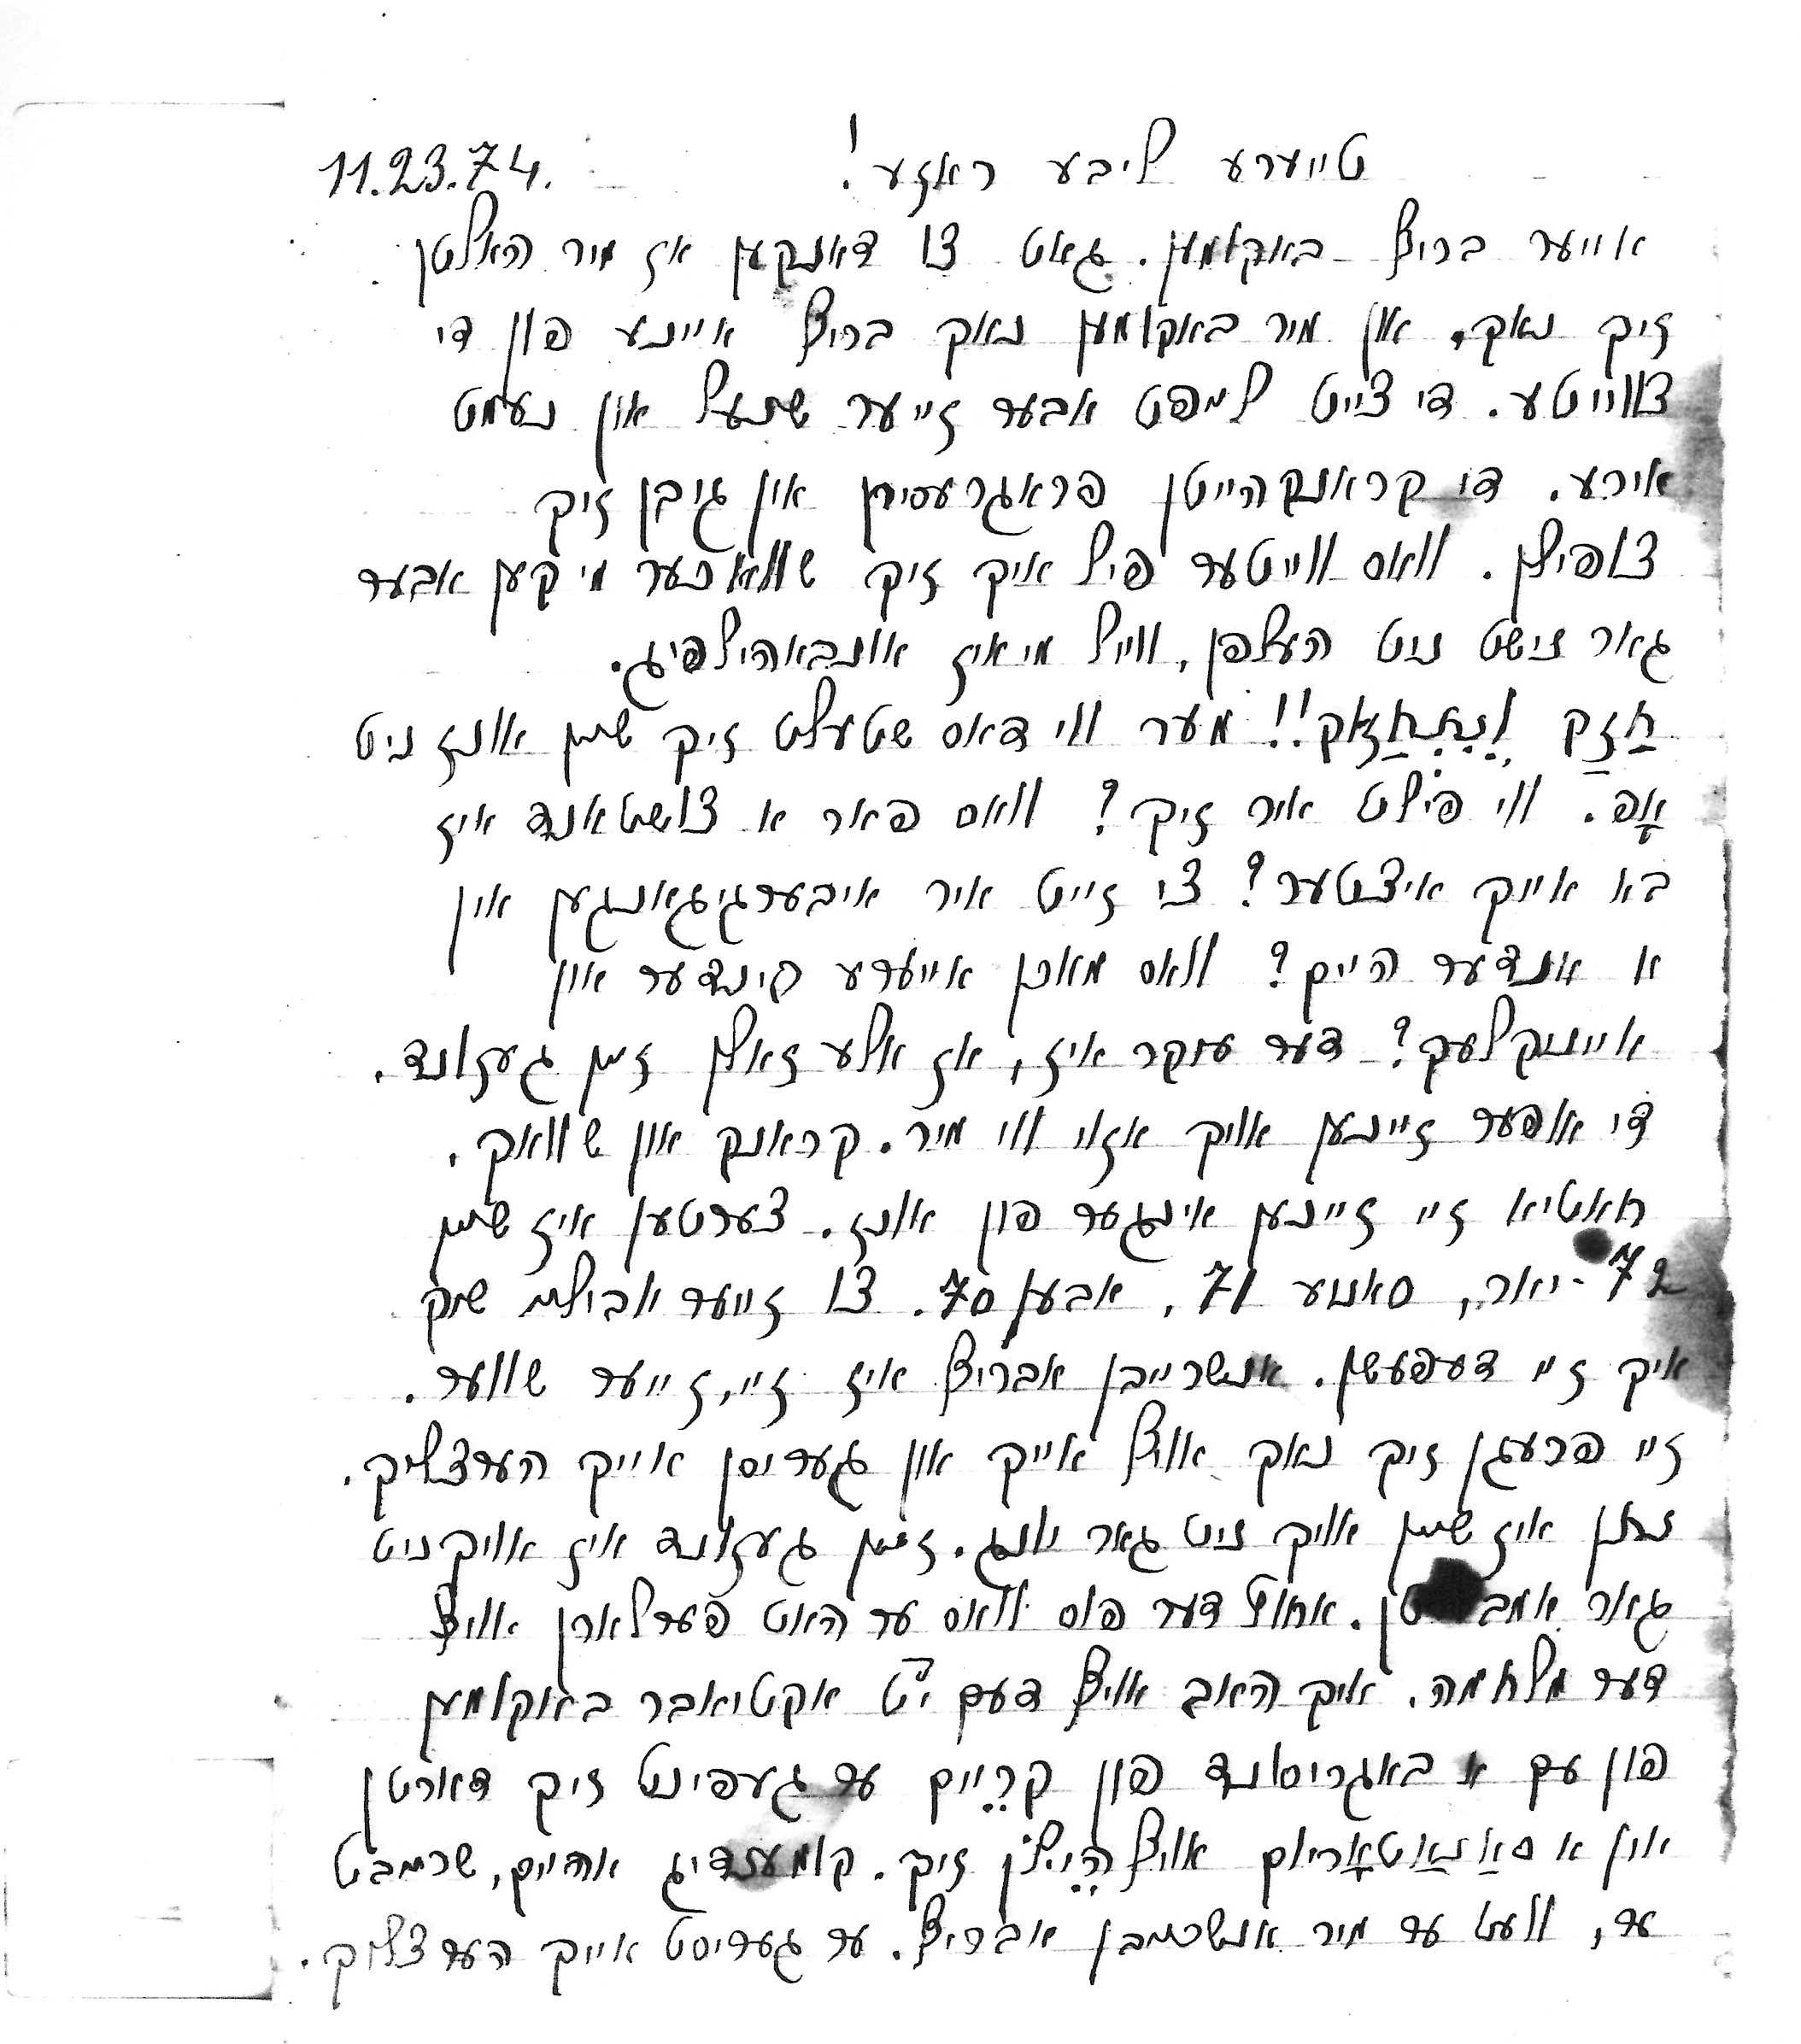 11.23.74. טייערע ליבע ראזע!
אייער בריוו באקומען. גאט צו דאנקען אז מיר האלטן
זיך נאך, און מיר באקומען נאך בריוו איינע פון די
צווייטע. די צייט לויפט אבער זייער שנעל און נעמט
אירע. די קראנקהייטן פראגרעסירן און גיבן זיך
צופילן. וואס ווייטער פיל איך זיך שוואכער מי קען אבער
גאר נישט ניט העלפן, ווייל מי איז אונבאהילפיג.
חַזַק וְנִתְחַזַאק!! מער ווי דאס שטעלט זיך שוין אונז ניט
אָפ. ווי פילט איר זיך? וואס פאר א צושטאנד איז
בא אייך איצטער? צי זייט איר איבערגיגאנגען אין
א אנדער היים? וואס מאכן אייערע קינדער און
אייניקלעך? דער עיקר איז, אז אלע זאלן זיין געזונד.
די אפער זיינען אויך אזוי ווי מיר. קראנק און שוואך,
חאטיא זיי זיינען אינגער פון אונז. צערטען איז שוין
72 - יאר, סאניע 71, אבען 70. צו זייער יוביליי שיק
איך זיי דעפעשן. אנשרייבן אבריוו איז זיי, זייער שווער.
זיי פרעגן זיך נאך אויף אייך און גערוסן אייך הערצליך.
נתן איז שוין אויך ניט גאר יונג. זיין געזונד איז אויך ניט
גאר. אחוץ דער פוס וואס ער האט פערלארן אויף
דער מלחמה. איך האב אויף דעם י״ט אקטיאבר באקומען
פון עם א באגריסונד פון קרִיים ער געפינט זיך דארטן
אין א סאַנאַטאָריום אויף היילן זיך. קומענדיג אהיים, שרייבט
ער, וועט ער מיר אנשרייבן אבריוו. ער גערוסט אייך הערצליך.